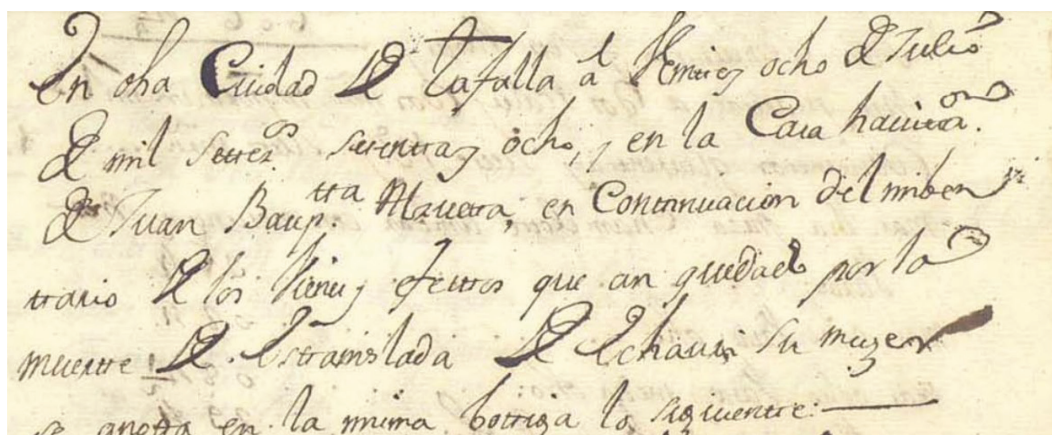 En dha Ciudad de tafalla a Veinte y ocho de Julio
de mil setezs setenta y ocho, y en la Casa havitaon.
de Juan Baup.tta Maestra, en Continuacion del imben
tario de los Vienes y efectos que an quedado por la
muertte de Estanislada de Echauri su muger
se anotta en la misma bottiga lo siguientte